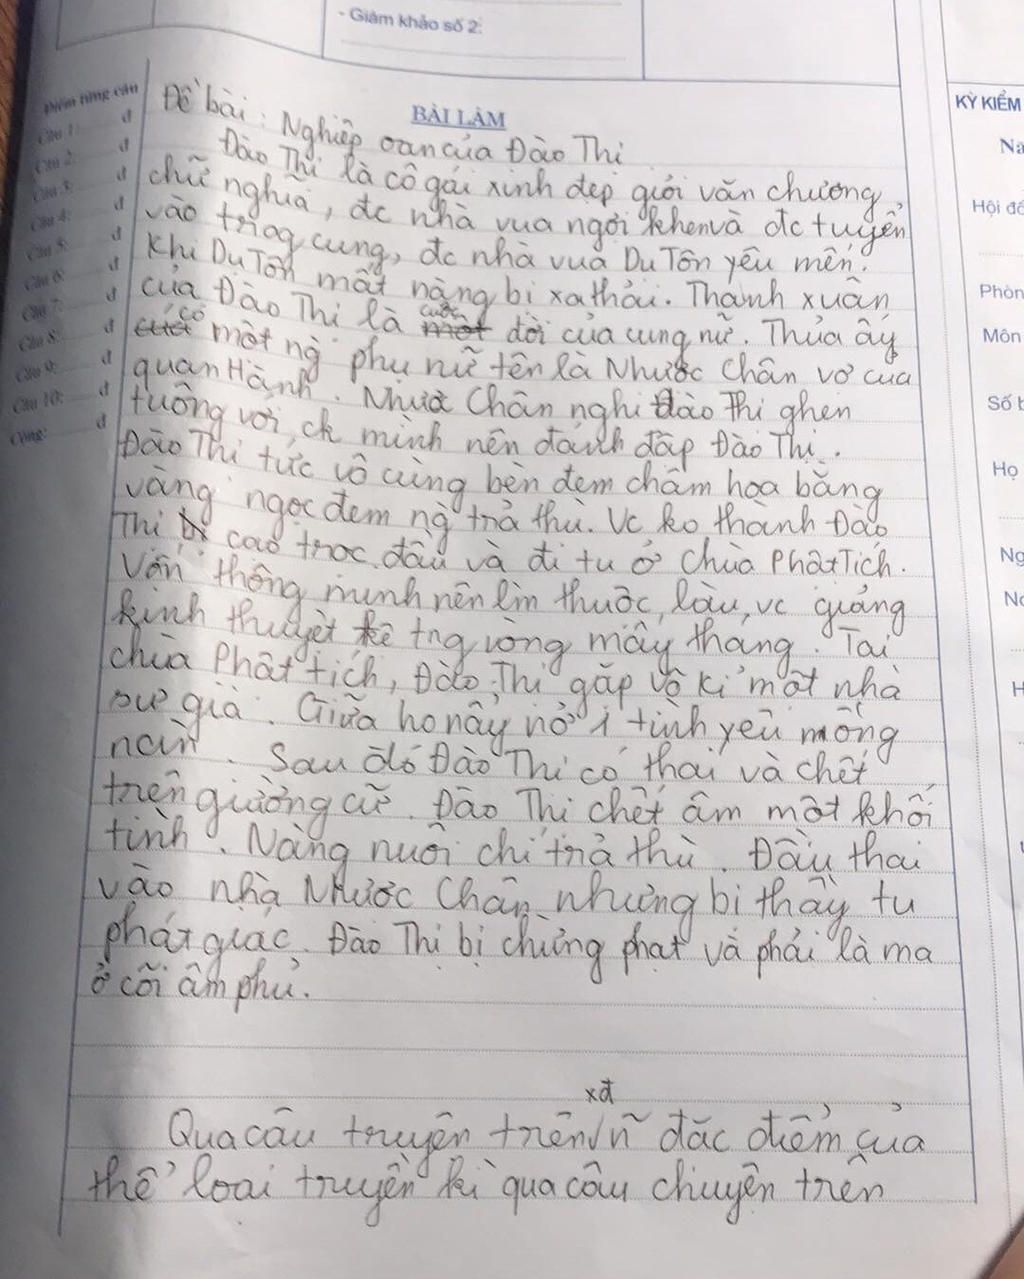 - Giám khảo số 2:
Điểm từng câu
Câu 1: đ
Câu 2: đ
Câu 3: đ
Câu 4: đ
Câu 5: đ
Câu 6: đ
Câu 7: đ
Câu 8: đ
Câu 9: đ
Câu 10: đ
Cộng: đ
BÀI LÀM
Đề bài: Nghiệp oan của Đào Thị
Đào Thị là cô gái xinh đẹp giỏi văn chương,
chữ nghĩa, đc nhà vua ngợi khen và đc tuyển
vào trog cung, đc nhà vua Du Tôn yêu mến.
Khi Du Tôn mất nàng bị xa thải. Thanh xuân
của Đào Thị là cuộc đời của cung nữ. Thủa ấy
có một ng` phụ nữ tên là Nhược Chân vợ của
quan Hành. Nhược Chân nghi Đào Thị ghen
tuông với ck mình nên đánh đập Đào Thị.
Đào Thị tức vô cùng bèn đem châm hoa bằng
vàng ngọc đem ng` trả thù. Vc ko thành Đào
Thị cạo trọc đầu và đi tu ở Chùa Phật Tích.
Vốn thông minh nên lm thuộc làu, vc giảng
kinh thuyết kệ tng vòng mấy tháng. Tại
chùa Phật tích, Đào Thị gặp Vô Kỉ một nhà
sư già. Giữa họ nảy nở 1 tình yêu mống
nan. Sau đó Đào Thị có thai và chết
trên giường cữ. Đào Thị chết âm một khối
tình. Nàng nuôi chí trả thù. Đầu thai
vào nhà Nhược Chân nhưng bị thầy tu
phát giác. Đào Thị bị chừng phạt và phải là ma
ở cõi âm phủ.
xđ
Qua câu truyện trên/ n~ đặc điểm của
thể loại truyền kì qua câu chuyện trên
KỲ KIỂM
Nă
Hội đồ
Phòn
Môn
Số b
Họ
Ng
No
H